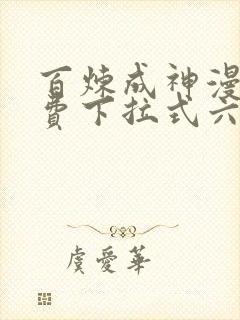 百炼成神漫
费下拉式六
虞爱华